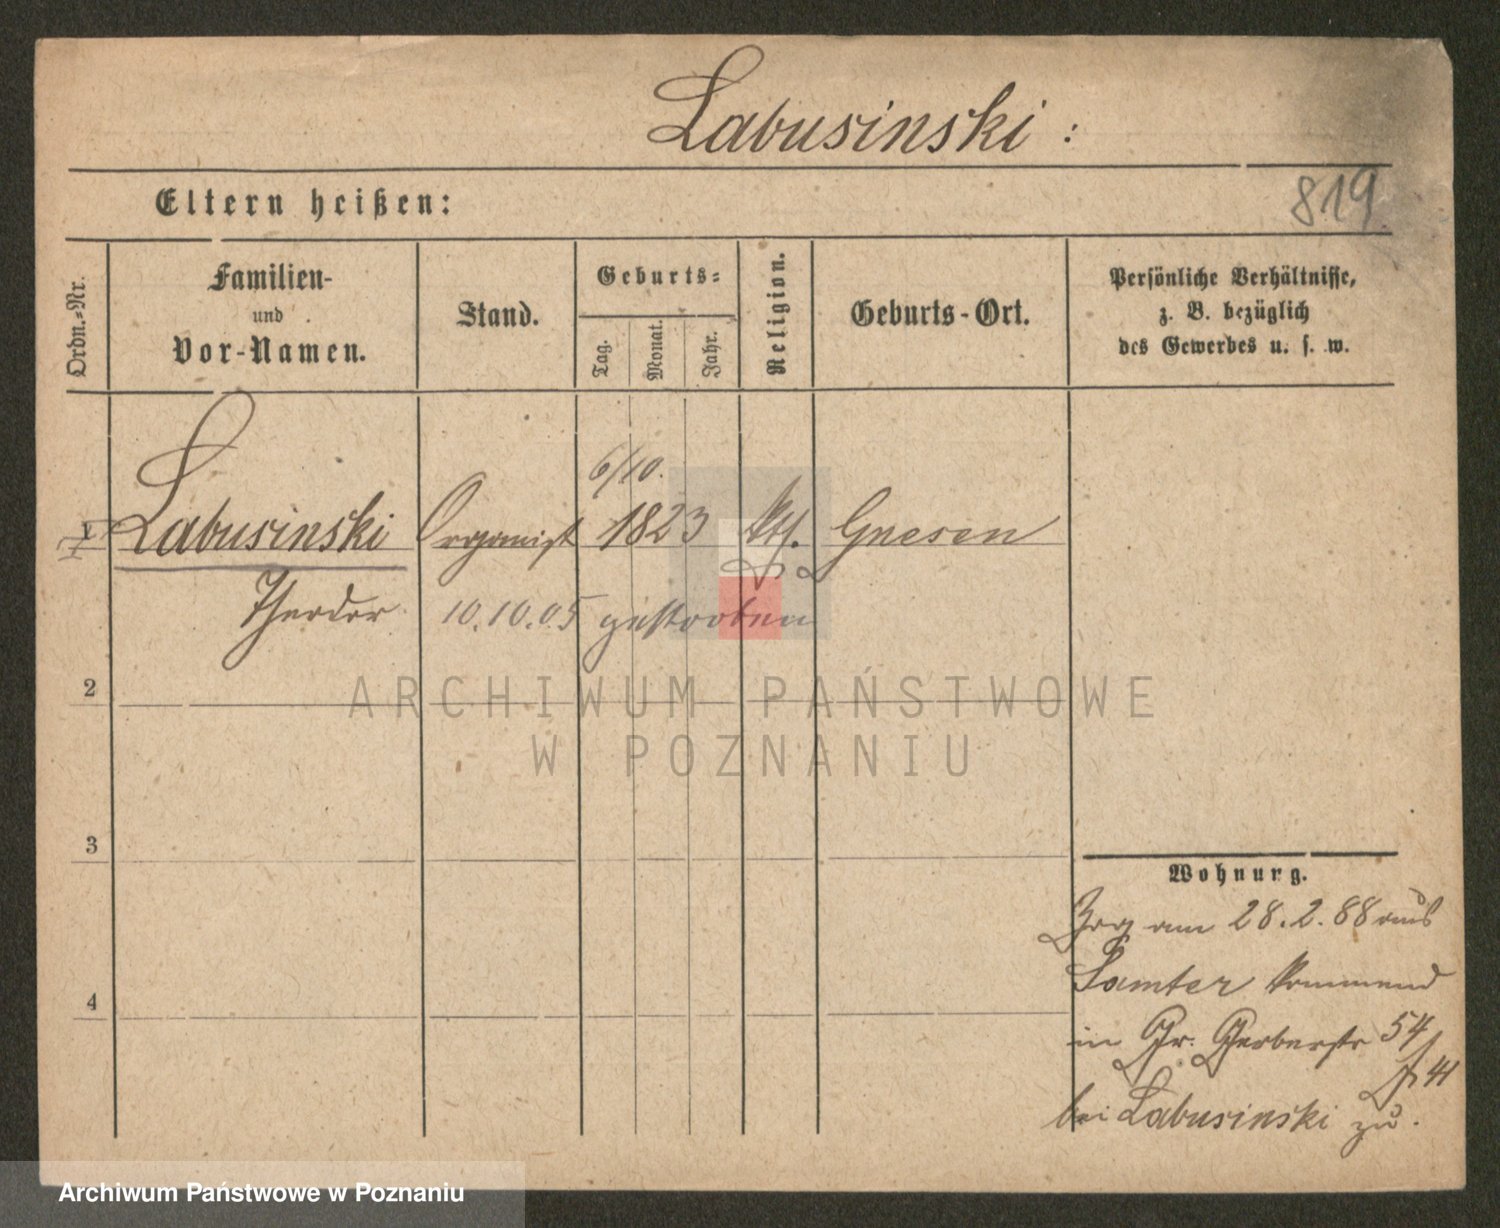 Labusinski :
Eltern heißen:
819
Ordn.-Nr.
Familien-
und
Vor-Namen.
Stand.
Geburts-
Tag.
Monat.
Jahr.
Religion.
Geburts-Ort.
Persönliche Verhältnisse,
z. B. bezüglich
des Gewerbes u. s. w.
6/10.
1 Labusinski Organist 1823 kth. Gnesen
Theodor 10.10.05 gestorben
2
ARCHIWUM PAŃSTWOWE
W POZNANIU
3
Wohnung.
am 28.2.88 aus
Samter kommend
4
in Gr. Gerberstr 54
41
bei Labusinski zu.
Archiwum Państwowe w Poznaniu